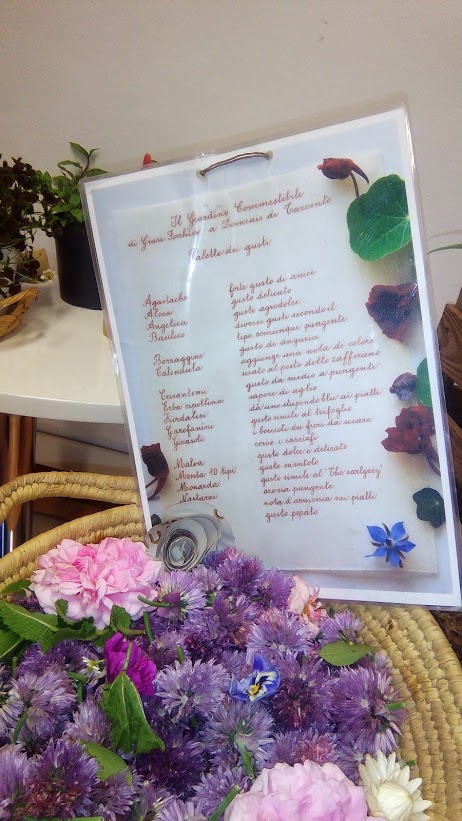 Il Giardino Commestibile
di Giusi Foschia a Zomeais di Tarcento
Palette dei gusti
Agastache forte gusto di anice
Alcea gusto delicato
Angelica gusto agrodolce
Basilico diversi gusti secondo il
tipo, comunque pungente
Borraggine gusto di anguria
Calendula aggiunge una nota di colore
usato al posto dello zafferano
Crisantemi gusto da medio a pungente
Erba cipollina sapore di aglio
dà uno stupendo blu ai piatti
Garofanini gusto simile al trifoglio
Girasoli i boccioli dei fiori da usare
come i carciofi
Malva gusto dolce e delicato
Menta 10 tipi gusto mentolo
Monarda gusto simile al "The earlgrey"
Nasturzi aroma pungente
nota d'armonia nei piatti
gusto pepato